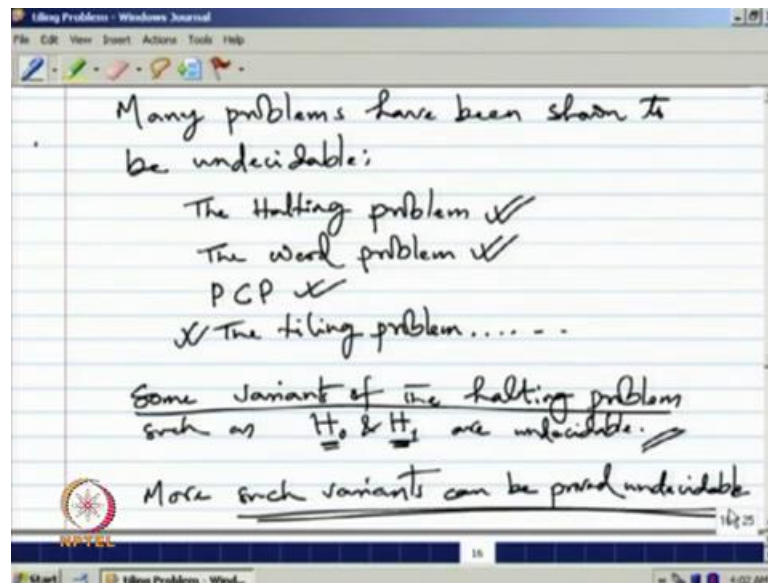 tiling Problem - Windows Journal
File Edit View Insert Actions Tools Help
Many problems have been shown to
be undecidable;
The Halting problem
The word problem
PCP
The tiling problem.......
Some variant of the halting problem
such as H₀ & H₁ are undecidable.
More such variants can be proved undecidable
NPTEL
16
Start tiling Problem - Wind... 4:02 AM